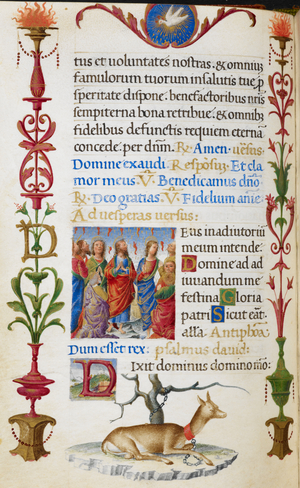 tus et uoluntates nostras. & omniũ
famulorum tuorum in salutis tue p̱
speritate dispone. benefactoribus nr̃is
sempiterna bona retribue. & omnibȝ
fidelibus defunctis requiem eternã
concede. per dñm. R̷ Amen. uersus.
Domine exaudi. Respõsus. Et cla
mor meus. V̷ Benedicamus dño
R̷ Deo gratias. V̷ Fidelium aniẽ
Ad uesperas uersus:
Eus in adiutoriũ
meum intende.
Domine ad ad
iuuandum me
festina. Gloria
patri Sicut erãt.
alla. Antiphõa
Dum esset rex: psalmus dauid:
D Ixit dominus domino mõ:
D